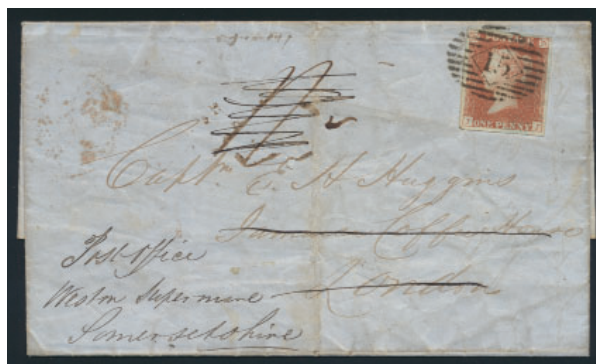 15
ONE PENNY
Captn E. H. Huggins
Jamaica Coffee House
London
Post Office
Weston Super mare
Somersetshire